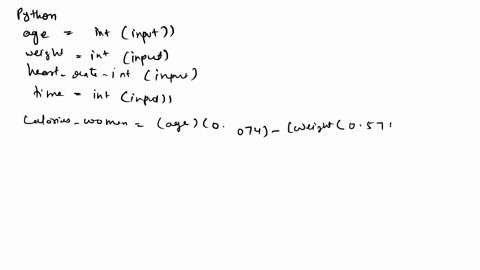 Python
age = int (input))
weight = int (input)
heart_rate = int (input)
time = int (input))
Calories_women = (age) (0.074) - (weight (0.57